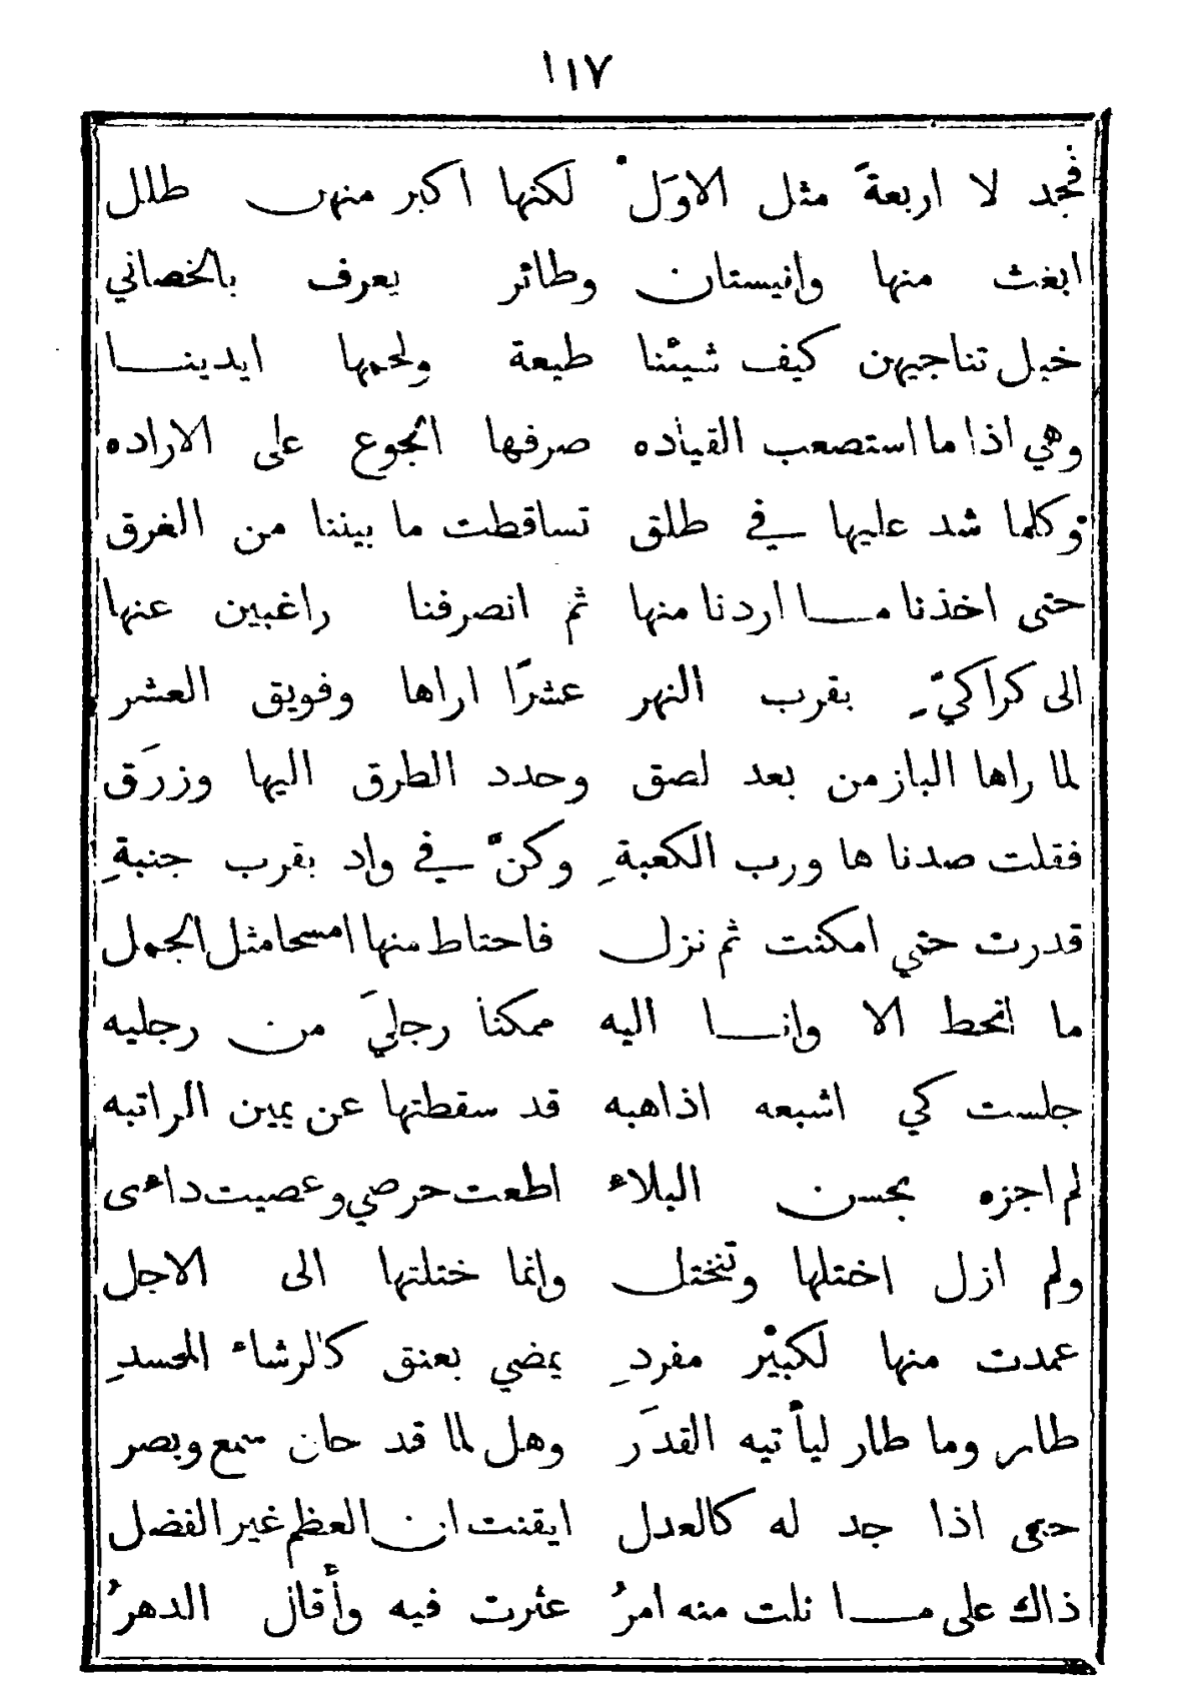 ١١٧
فجد لا اربعةً مثل الاوَل لكنها اكبر منهن طلل
ابغث منها وانيستان وطائر يعرف بالخصاني
خبل تناجيهن كيف شيئنا طيعة ولحمها ايدينـــا
وهي اذا ما استصعب القياده صرفها الجوع على الاراده
وكلما شد عليها في طلق تساقطت ما بيننا من الغرق
حتى اخذنا مـــا اردنا منها ثم انصرفنا راغبين عنها
الى كراكيّ بقرب النهر عشرًا اراها وفويق العشر
لما راها الباز من بعد لصق وحدد الطرق اليها وزرَق
فقلت صدنا ها ورب الكعبةِ وكنّ في واد بقرب جنبةِ
قدرت حتي امكنت ثم نزل فاحتاط منها امسحا مثل الجمل
ما انحط الا وانـــا اليه ممكنا رجليَ من رجليه
جلست كي اشبعه اذاهبه قد سقطتها عن يمين الراتبه
لم اجزه بحسن البلاء اطعت حرصي وعصيت داءى
ولم ازل اختلها وتنختل وانما ختلتها الى الاجل
عمدت منها لكبيْر مفردِ يمضي بعنق كالرشاء المحسدِ
طار وما طار ليأتيه القدَر وهل لما قد حان سمع وبصر
حتى اذا جد له كالعدل ايقنت ان العظم غير الفضل
ذاك على مـــا نلت منه امرُ عثرت فيه وأقال الدهرُ